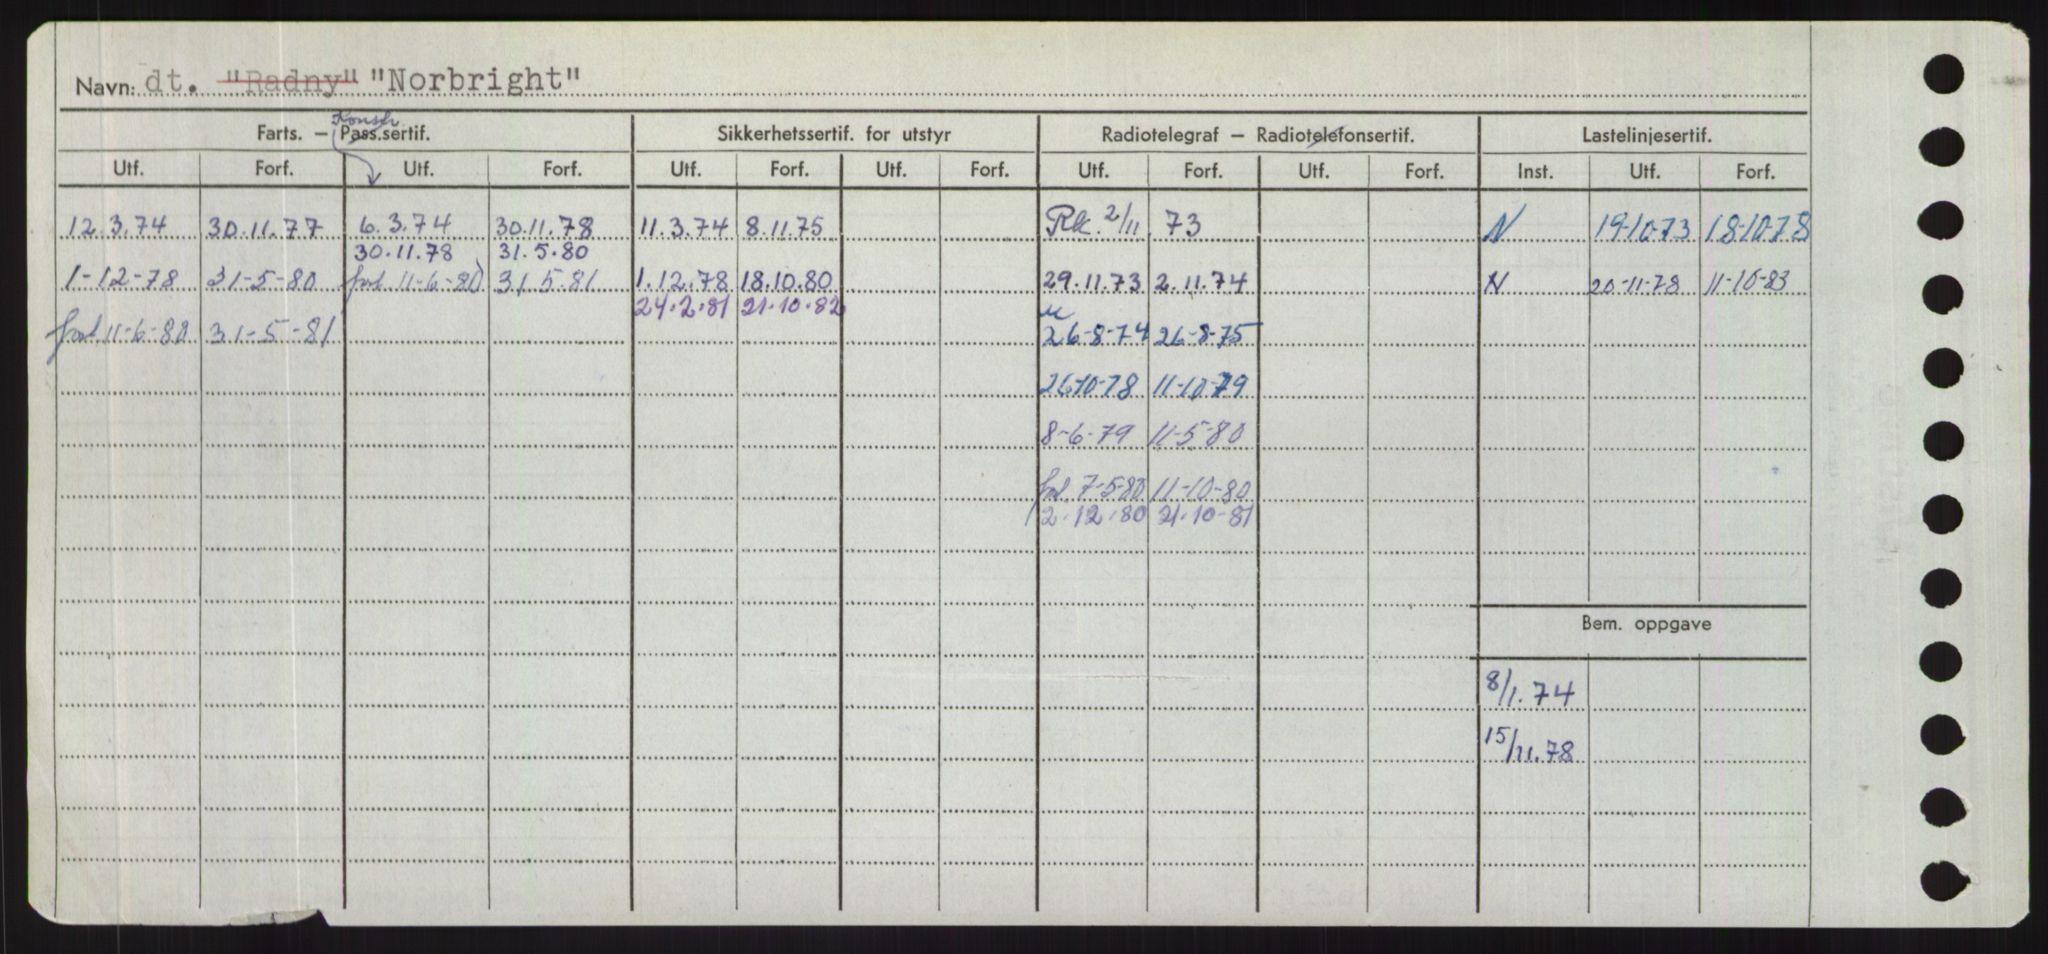 Navn: dt. "Radny" "Norbright"
Konstr.
Farts. – Pass.sertif. Sikkerhetssertif. for utstyr Radiotelegraf – Radiotelefonsertif. Lastelinjesertif.
Utf. Forf. Utf. Forf. Utf. Forf. Utf. Forf. Utf. Forf. Utf. Forf. Inst. Utf. Forf.
12.3.74 30.11.77 6.3.74 30.11.78 11.3.74 8.11.75 Rk. 2/11 73 N 19-10-73 18-10-78
30.11.78 31.5.80
1-12-78 31-5-80 forl. 11-6-80 31.5.81 1.12.78 18.10.80 29.11.73 2.11.74 N 20-11-78 11-10-83
24.2.81 21.10.82
forl. 11-6-80 31-5-81 26-8-74 26-8-75
26-10-78 11-10-79
8-6-79 11-5-80
forl. 7-5-80 11-10-80
2.12.80 21.10-81
Bem. oppgave
8/1.74
15/11.78